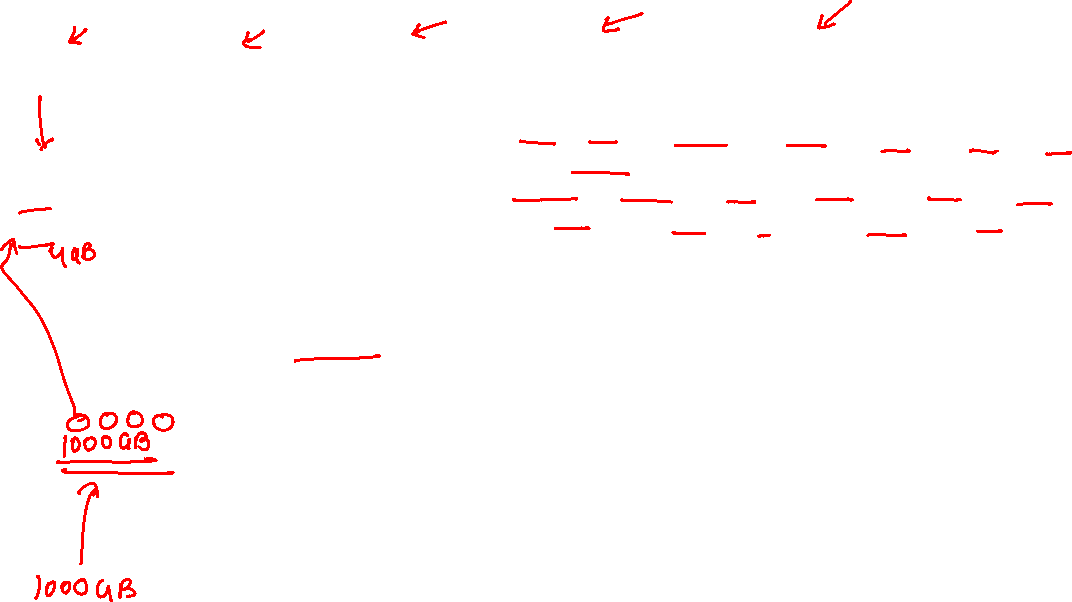 4GB
1000GB
1000GB